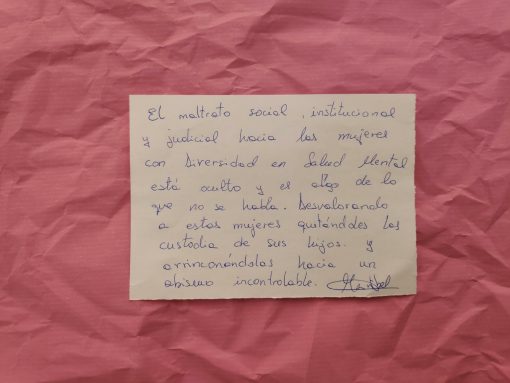 El maltrato social, institucional
y judicial hacia las mujeres
con Diversidad en Salud Mental
está oculto y es algo de lo
que no se habla. Desvalorando
a estas mujeres quitándoles las
custodia de sus hijos. y
arrinconándolas hacia un
abismo incontrolable. Maribel